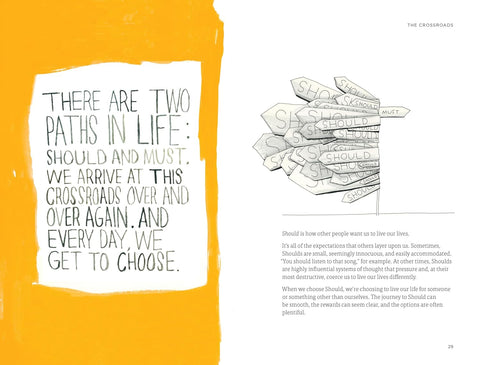 THERE ARE TWO
PATHS IN LIFE:
SHOULD AND MUST.
WE ARRIVE AT THIS
CROSSROADS OVER AND
OVER AGAIN. AND
EVERY DAY, WE
GET TO CHOOSE.
THE CROSSROADS
SHOULD
SHOULD
MUST
SHOULD
SHOULD
SHOULD
Should is how other people want us to live our lives.
It's all of the expectations that others layer upon us. Sometimes,
Shoulds are small, seemingly innocuous, and easily accommodated.
"You should listen to that song," for example. At other times, Shoulds
are highly influential systems of thought that pressure and, at their
most destructive, coerce us to live our lives differently.
When we choose Should, we're choosing to live our life for someone
or something other than ourselves. The journey to Should can
be smooth, the rewards can seem clear, and the options are often
plentiful.
29